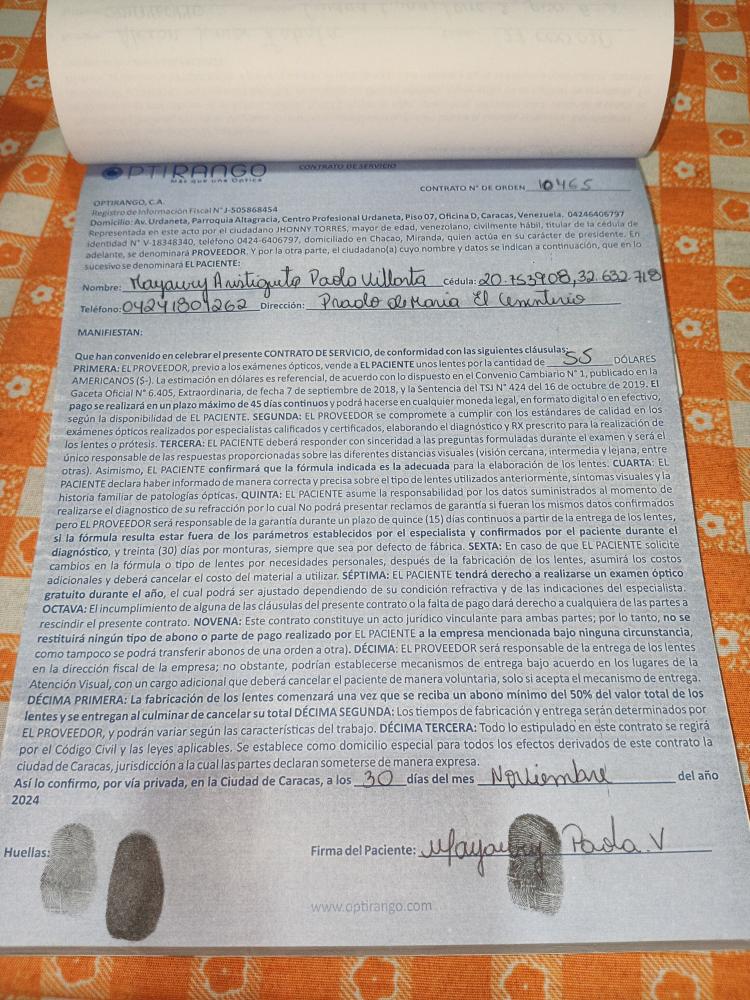 OPTIRANGO
Más que una Óptica
CONTRATO DE SERVICIO
CONTRATO N° DE ORDEN 10465
OPTIRANGO, C.A.
Registro de Información Fiscal N° J-505868454
Domicilio: Av. Urdaneta, Parroquia Altagracia, Centro Profesional Urdaneta, Piso 07, Oficina D, Caracas, Venezuela. 04246406797
Representada en este acto por el ciudadano JHONNY TORRES, mayor de edad, venezolano, civilmente hábil, titular de la cédula de
identidad N° V-18348340, teléfono 0424-6406797, domiciliado en Chacao, Miranda, quien actúa en su carácter de presidente. En
adelante, se denominará PROVEEDOR. Y por la otra parte, el ciudadano(a) cuyo nombre y datos se indican a continuación, que en lo
sucesivo se denominará EL PACIENTE:
Nombre: Mayawry Aristigueta Paola Villorta Cédula: 20.753908,32.632.718
Teléfono: 04241801262 Dirección: Prado de Maria El Cementerio
MANIFIESTAN:
Que han convenido en celebrar el presente CONTRATO DE SERVICIO, de conformidad con las siguientes cláusulas:
PRIMERA: EL PROVEEDOR, previo a los exámenes ópticos, vende a EL PACIENTE unos lentes por la cantidad de 55 DÓLARES
AMERICANOS ($-). La estimación en dólares es referencial, de acuerdo con lo dispuesto en el Convenio Cambiario N° 1, publicado en la
Gaceta Oficial N° 6.405, Extraordinaria, de fecha 7 de septiembre de 2018, y la Sentencia del TSJ N° 424 del 16 de octubre de 2019. El
pago se realizará en un plazo máximo de 45 días continuos y podrá hacerse en cualquier moneda legal, en formato digital o en efectivo,
según la disponibilidad de EL PACIENTE. SEGUNDA: EL PROVEEDOR se compromete a cumplir con los estándares de calidad en los
exámenes ópticos realizados por especialistas calificados y certificados, elaborando el diagnóstico y RX prescrito para la realización de
los lentes o prótesis. TERCERA: EL PACIENTE deberá responder con sinceridad a las preguntas formuladas durante el examen y será el
único responsable de las respuestas proporcionadas sobre las diferentes distancias visuales (visión cercana, intermedia y lejana, entre
otras). Asimismo, EL PACIENTE confirmará que la fórmula indicada es la adecuada para la elaboración de los lentes. CUARTA: EL
PACIENTE declara haber informado de manera correcta y precisa sobre el tipo de lentes utilizados anteriormente, síntomas visuales y la
historia familiar de patologías ópticas. QUINTA: EL PACIENTE asume la responsabilidad por los datos suministrados al momento de
realizarse el diagnostico de su refracción por lo cual No podrá presentar reclamos de garantía si fueran los mismos datos confirmados
pero EL PROVEEDOR será responsable de la garantía durante un plazo de quince (15) días continuos a partir de la entrega de los lentes,
si la fórmula resulta estar fuera de los parámetros establecidos por el especialista y confirmados por el paciente durante el
diagnóstico, y treinta (30) días por monturas, siempre que sea por defecto de fábrica. SEXTA: En caso de que EL PACIENTE solicite
cambios en la fórmula o tipo de lentes por necesidades personales, después de la fabricación de los lentes, asumirá los costos
adicionales y deberá cancelar el costo del material a utilizar. SÉPTIMA: EL PACIENTE tendrá derecho a realizarse un examen óptico
gratuito durante el año, el cual podrá ser ajustado dependiendo de su condición refractiva y de las indicaciones del especialista.
OCTAVA: El incumplimiento de alguna de las cláusulas del presente contrato o la falta de pago dará derecho a cualquiera de las partes a
rescindir el presente contrato. NOVENA: Este contrato constituye un acto jurídico vinculante para ambas partes; por lo tanto, no se
restituirá ningún tipo de abono o parte de pago realizado por EL PACIENTE a la empresa mencionada bajo ninguna circunstancia,
como tampoco se podrá transferir abonos de una orden a otra). DÉCIMA: EL PROVEEDOR será responsable de la entrega de los lentes
en la dirección fiscal de la empresa; no obstante, podrían establecerse mecanismos de entrega bajo acuerdo en los lugares de la
Atención Visual, con un cargo adicional que deberá cancelar el paciente de manera voluntaria, solo si acepta el mecanismo de entrega.
DÉCIMA PRIMERA: La fabricación de los lentes comenzará una vez que se reciba un abono mínimo del 50% del valor total de los
lentes y se entregan al culminar de cancelar su total DÉCIMA SEGUNDA: Los tiempos de fabricación y entrega serán determinados por
EL PROVEEDOR, y podrán variar según las características del trabajo. DÉCIMA TERCERA: Todo lo estipulado en este contrato se regirá
por el Código Civil y las leyes aplicables. Se establece como domicilio especial para todos los efectos derivados de este contrato la
ciudad de Caracas, jurisdicción a la cual las partes declaran someterse de manera expresa.
Así lo confirmo, por vía privada, en la Ciudad de Caracas, a los 30 días del mes Noviembre del año
2024
Huellas:
Firma del Paciente: Mayawry Paola.V
www.optirango.com